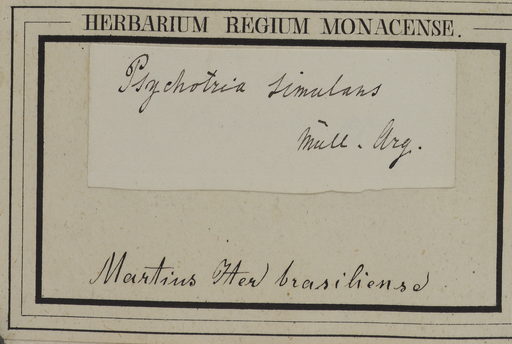 HERBARIUM REGIUM MONACENSE.
Psychotria simulans
Müll. Arg.
Martius Iter brasiliense